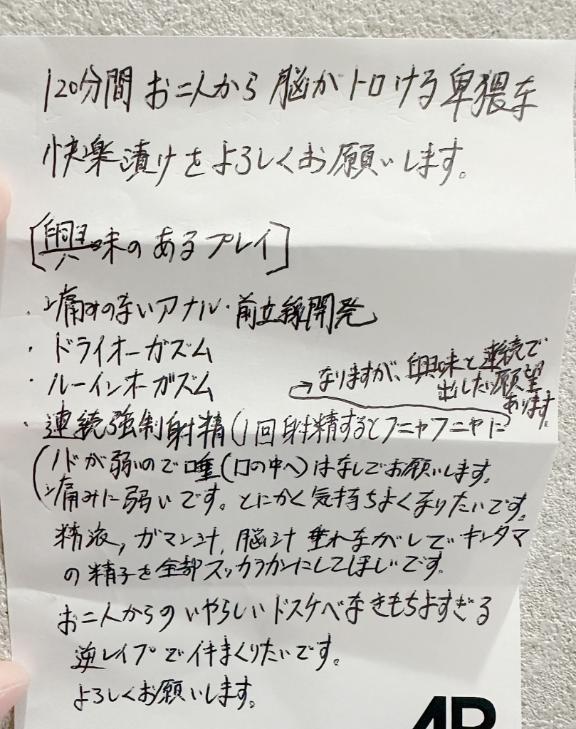 120分間 お二人から 脳がトロける卑猥な
快楽漬けをよろしくお願いします。
[興味のあるプレイ]
・痛みのないアナル・前立線開発
・ドライオーガズム
・ルーインオーガズム
→なりますが、興味と連続で
出したい願望
あります。
・連続強制射精(1回射精するとフニャフニャに
(ノドが弱いので唾(口の中へ)はなしでお願いします。
痛みに弱いです。とにかく気持ちよくなりたいです。
精液,ガマン汁,脳汁 垂れながしでキンタマ
の精子を全部スッカラカンにしてほしいです。
お二人からのいやらしいドスケベなきもちよすぎる
逆レイプでイキまくりたいです。
よろしくお願いします。